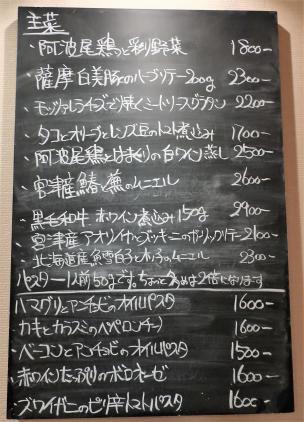 主菜
・阿波尾鶏と彩り野菜 1800-
・薩摩白美豚のハーブソテー200g 2300-
・モッツァレラチーズで焼くミートソースグラタン 2200-
・タコとオリーブとレンズ豆のトマト煮込み 1700-
・阿波尾鶏とはまぐりの白ワイン蒸し 2500-
・宮津産鰆と蕪のムニエル 2600-
・黒毛和牛 赤ワイン煮込み150g 2900-
・宮津産アオリイカとズッキーニのガーリックソテー 2100-
・北海道産鱈雪白子と のムニエル 2300-
パスタ 1人前50gです。ちょっと多めは2倍になります
ハマグリとアンチョビのオイルパスタ 1600-
・カキとカラスミのペペロンチーノ 1600-
・ベーコンとアンチョビのオイルパスタ 1500-
・赤ワインたっぷりのボロネーゼ 1600-
・ズワイガニのピリ辛トマトパスタ 1600-